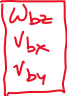 ω_bz
v_bx
v_by